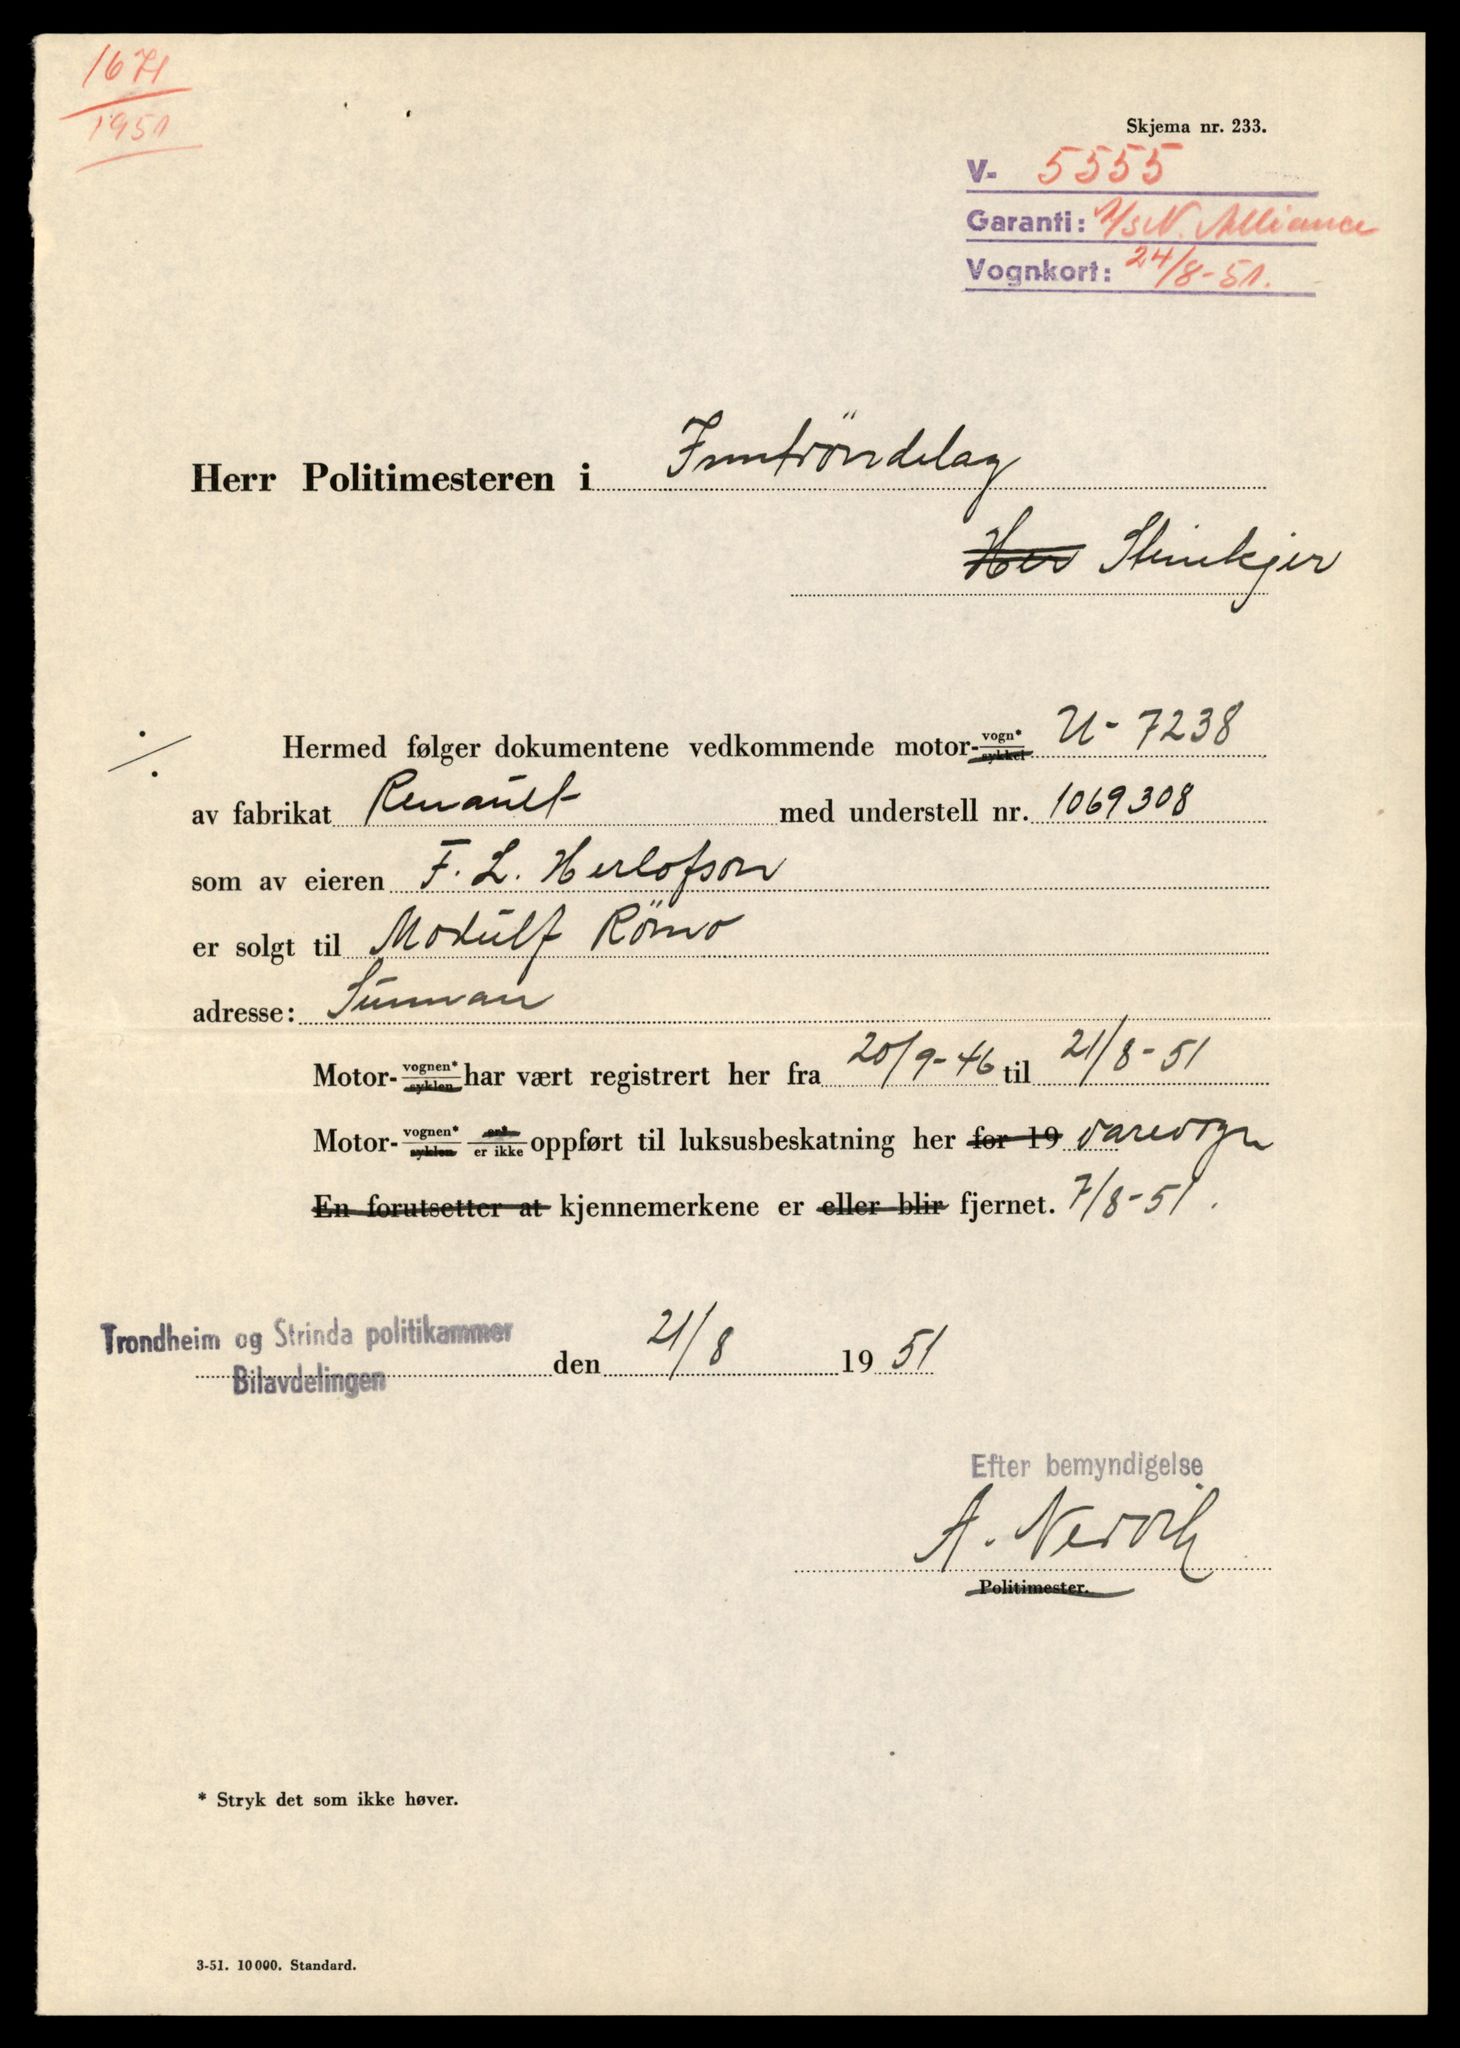 1671
1951
Skjema nr. 233.
V- 5555
Garanti: A/S N. Alliance
Vognkort: 24/8-51.
Herr Politimesteren i Inntröndelag
Her Steinkjer
Hermed følger dokumentene vedkommende motor- vogn* sykkel U- 7238
av fabrikat Renault med understell nr. 1069308
som av eieren F. L. Herlofson
er solgt til Modulf Römo
adresse: Sunnan
Motor- vognen* syklen har vært registrert her fra 20/9-46 til 21/8-51
Motor- vognen* syklen er ikke oppført til luksusbeskatning her for 19 varevogn
En forutsetter at kjennemerkene er eller blir fjernet. 7/8-51.
Trondheim og Strinda politikammer
Bilavdelingen den 21/8 19 51
Efter bemyndigelse
A. Nervik
Politimester.
* Stryk det som ikke høver.
3-51. 10 000. Standard.